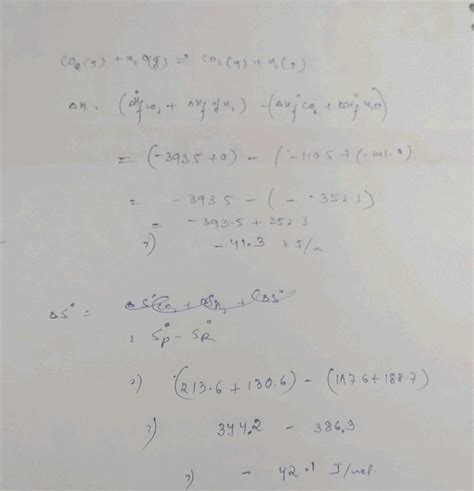 CO2(g) + H2O(g) ⇌ CO2(g) + H2(g)
ΔH. (ΔH°f CO2 + ΔHf of H2) - (ΔH°f CO2 + ΔH°f H2O)
= (-393.5 + 0) - (-110.5 + (-241.8)
= -393.5 - (- 352.3)
= -393.5 + 352.3
=) -41.3 KJ/
ΔS° =
= S°P - S°R
=) (213.6 + 130.6) - (197.6 + 188.7)
=) 344.2 - 386.3
=) - 42.1 J/mol.